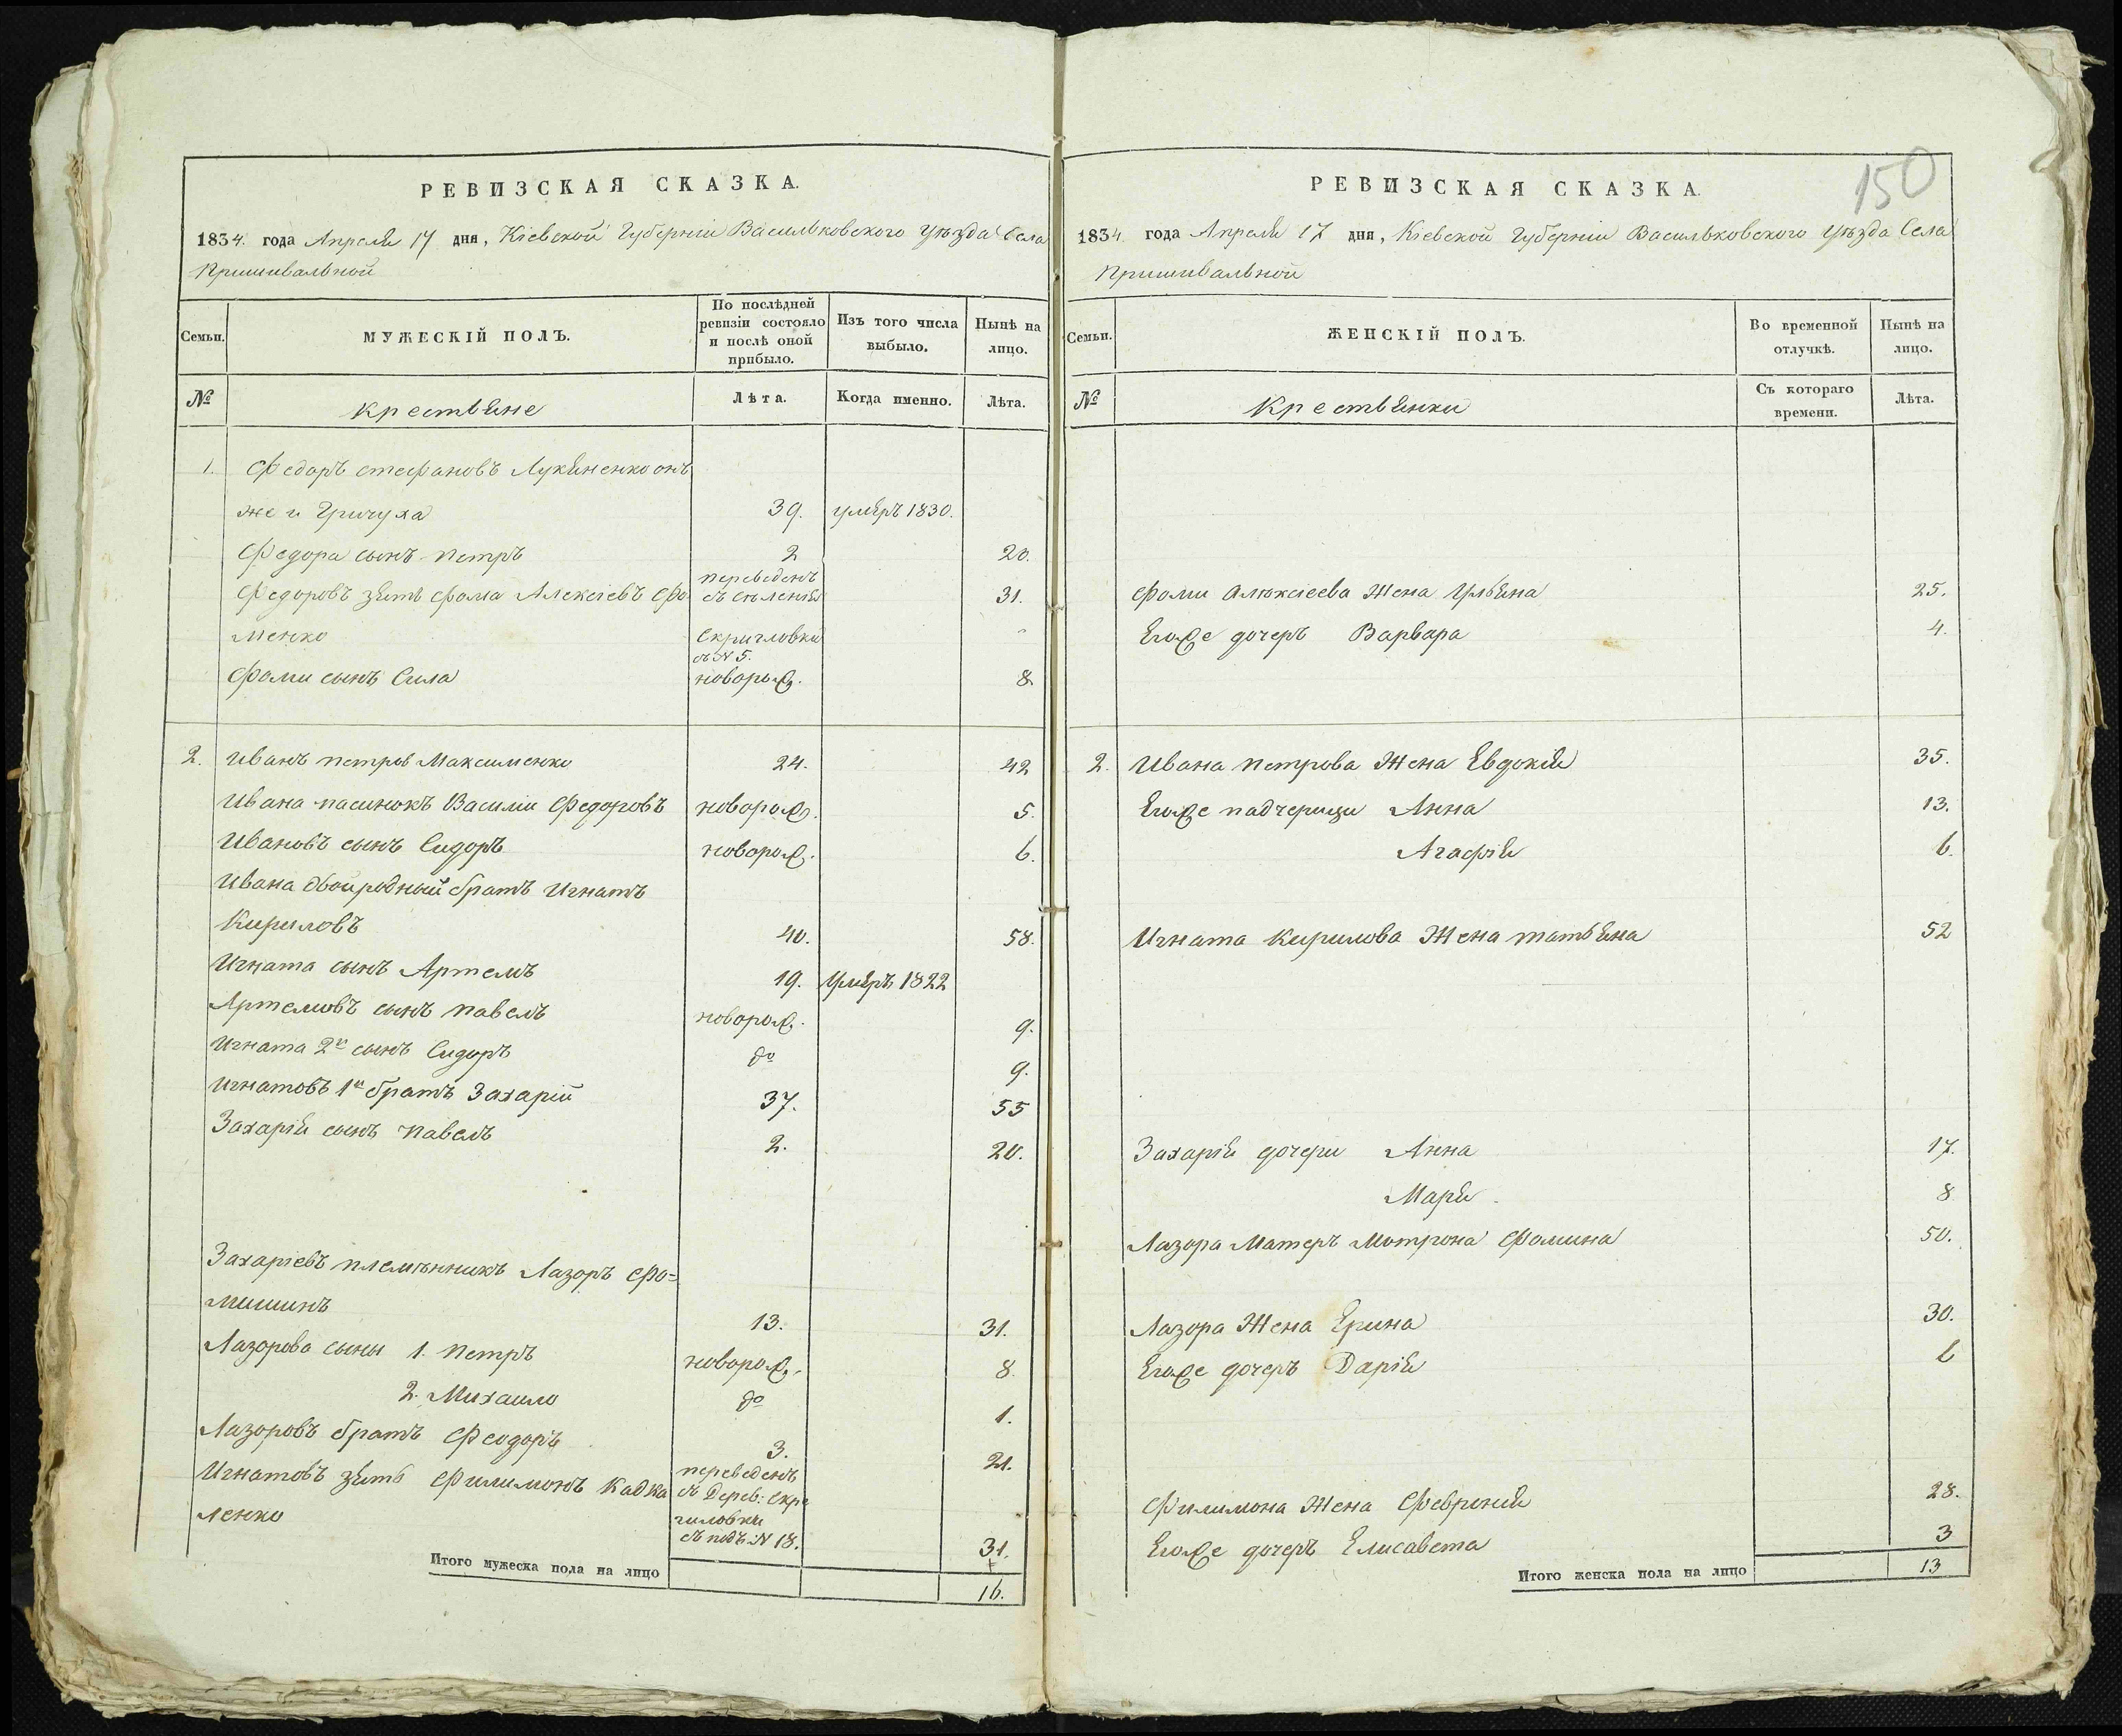 РЕВИЗСКАЯ СКАЗКА.
1834. года Апреля 17 дня, Кіевской Губерніи Васильковского Уѣзда Села
Пришивальной
Семьи.
МУЖЕСКІЙ ПОЛЪ.
По послѣдней ревизіи состояло и послѣ оной прибыло.
Изъ того числа выбыло.
Нынѣ на лицо.
№
Крестьяне
Лѣта.
Когда именно.
Лѣта.
1. Федоръ Стефановъ Лукяненко онъ
же и Гричуха 39. умеръ 1830.
Федора сынъ Петръ 2 20.
Федоровъ зять Фома Алексіевъ Фо переведенъ съ селенія 31.
менко Скригловки съ N 5.
Фоми сынъ Сила новорож. 8.
2. Иванъ Петров Максименко 24. 42
Ивана пасинокъ Василіи Федоровъ новорож. 5.
Ивановъ сынъ Сидоръ новорож. 6.
Ивана двоиродный братъ Игнатъ
Кириловъ 40. 58.
Игната сынъ Артемъ 19. Умеръ 1822
Артемовъ сынъ Павелъ новорож. 9.
Игната 2й сынъ Сидоръ до 9.
Игнатовъ 1й братъ Захарій 37. 55
Захарія сынъ Павелъ 2. 20.
Захаріевъ племѣнникъ Лазоръ Фо=
мишинъ 13. 31.
Лазорова сыны 1. Петръ новорож. 8.
2. Михаило до 1.
Лазоровъ братъ Феодоръ 3. 21.
Игнатовъ зять Филимонъ Кадка переведенъ съ Дерев: Скри
ленко гиловки съ подъ N 18. 31.
Итого мужеска пола на лицо 16.
150
РЕВИЗСКАЯ СКАЗКА.
1834 года Апреля 17 дня, Кіевской Губерніи Васильковского Уѣзда Села
Пришивальной
Семьи.
ЖЕНСКІЙ ПОЛЪ.
Во временной отлучкѣ.
Нынѣ на лицо.
№
Крестьянки
Съ котораго времени.
Лѣта.
Фоми Алексіеева Жена Ульяна 25.
Егоже дочеръ Варвара 4.
2. Ивана Петрова Жена Евдокія 35.
Егоже падчерици Анна 13.
Агафія 6.
Игната Кирилова Жена Татьяна 52
Захарія дочери Анна 17.
Марія 8
Лазора Матеръ Мотрона Фомина 50.
Лазора Жена Ерина 30.
Егоже дочеръ Дарія 6
Филимона Жена Февронія 28.
Егоже дочеръ Елисавета 3
Итого женска пола на лицо 13